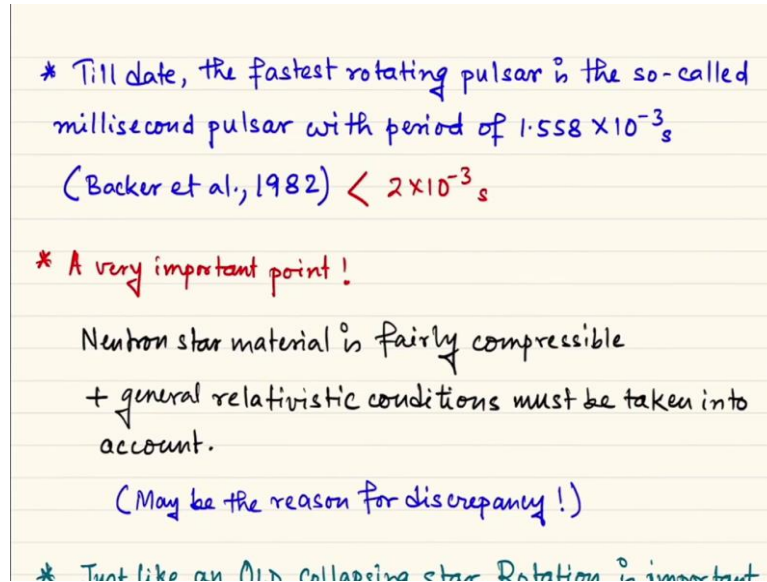 * Till date, the fastest rotating pulsar is the so-called
millisecond pulsar with period of 1.558 × 10⁻³s
(Backer et al., 1982) < 2×10⁻³s
* A very important point!
Neutron star material is fairly compressible
+ general relativistic conditions must be taken into
account.
(May be the reason for discrepancy!)
* Just like an OLD collapsing star Rotation is important